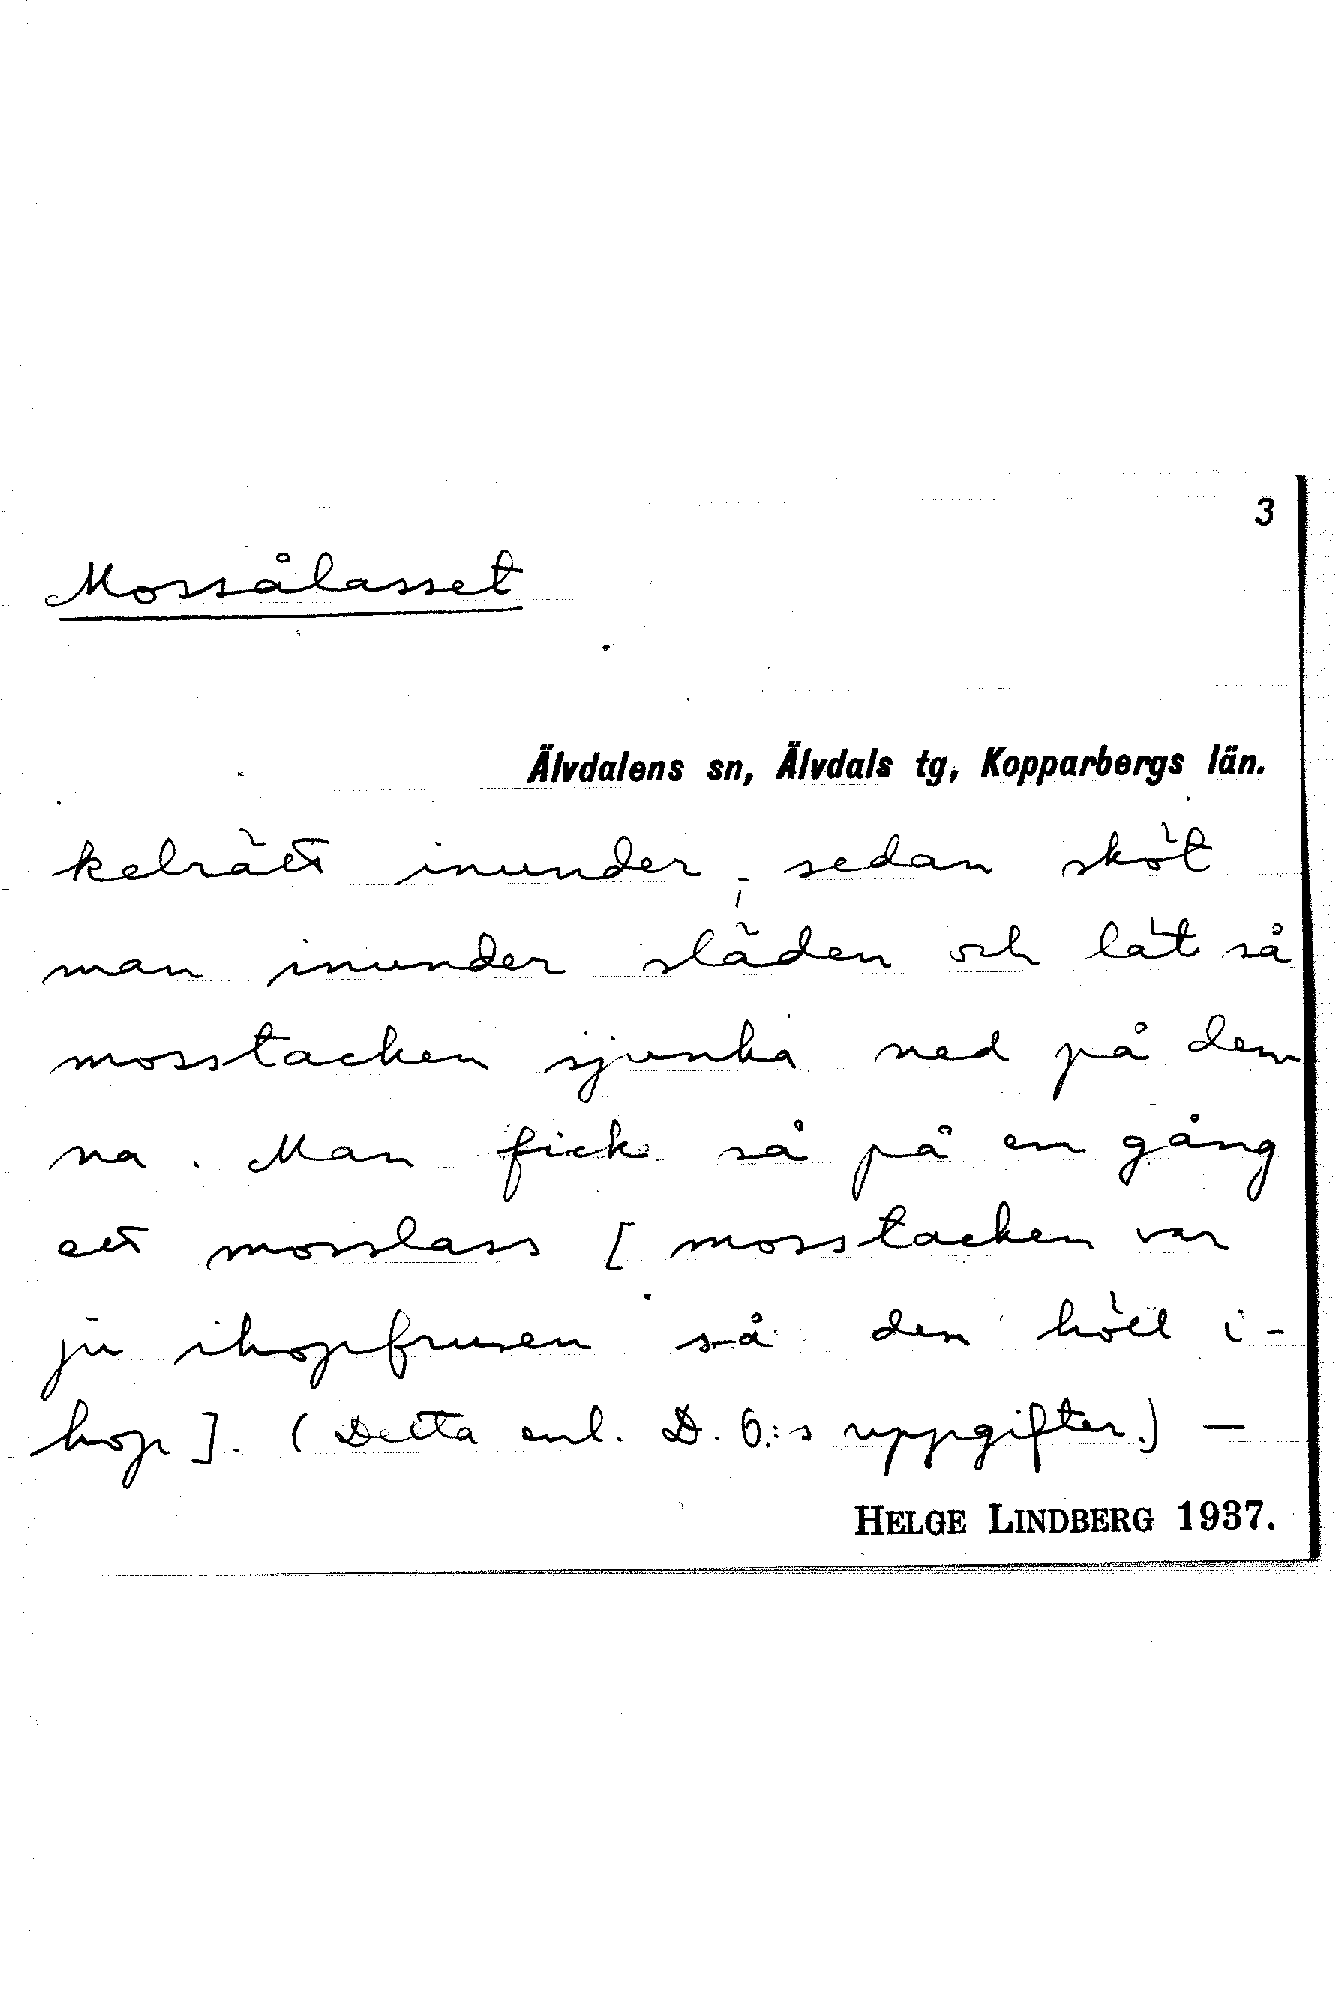 3
Mossålasset
Älvdalens sn, Älvdals tg, Kopparbergs län.
kelrätt inunder; sedan sköt
man inunder släden och lät så
mosstacken sjunka ned på den
na. Man fick så på en gång
ett mosslass [mosstacken var
ju ihopfrusen så den höll i-
hop]. (Detta enl. D. O.:s uppgifter.) —
HELGE LINDBERG 1937.